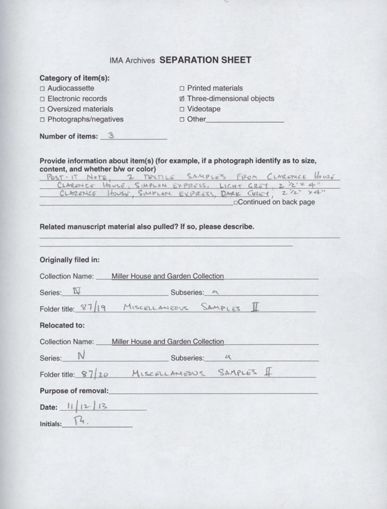 IMA Archives SEPARATION SHEET
Category of item(s):
□ Audiocassette
□ Electronic records
□ Oversized materials
□ Photographs/negatives
□ Printed materials
☑ Three-dimensional objects
□ Videotape
□ Other
Number of items: 3
Provide information about item(s) (for example, if a photograph identify as to size,
content, and whether b/w or color)
POST-IT NOTE, 2 TEXTILE SAMPLES FROM CLARENCE HOUSE
CLARENCE HOUSE, SIMPLON EXPRESS, LIGHT GREY, 2 1/2" x 4"
CLARENCE HOUSE, SIMPLON EXPRESS, DARK GREY, 2 1/2" x 4"
□Continued on back page
Related manuscript material also pulled? If so, please describe.
Originally filed in:
Collection Name: Miller House and Garden Collection
Series: IV Subseries:
Folder title: 87/19 MISCELLANEOUS SAMPLES II
Relocated to:
Collection Name: Miller House and Garden Collection
Series: N Subseries:
Folder title: 87/20 MISCELLANEOUS SAMPLES II
Purpose of removal:
Date: 11/12/13
Initials: